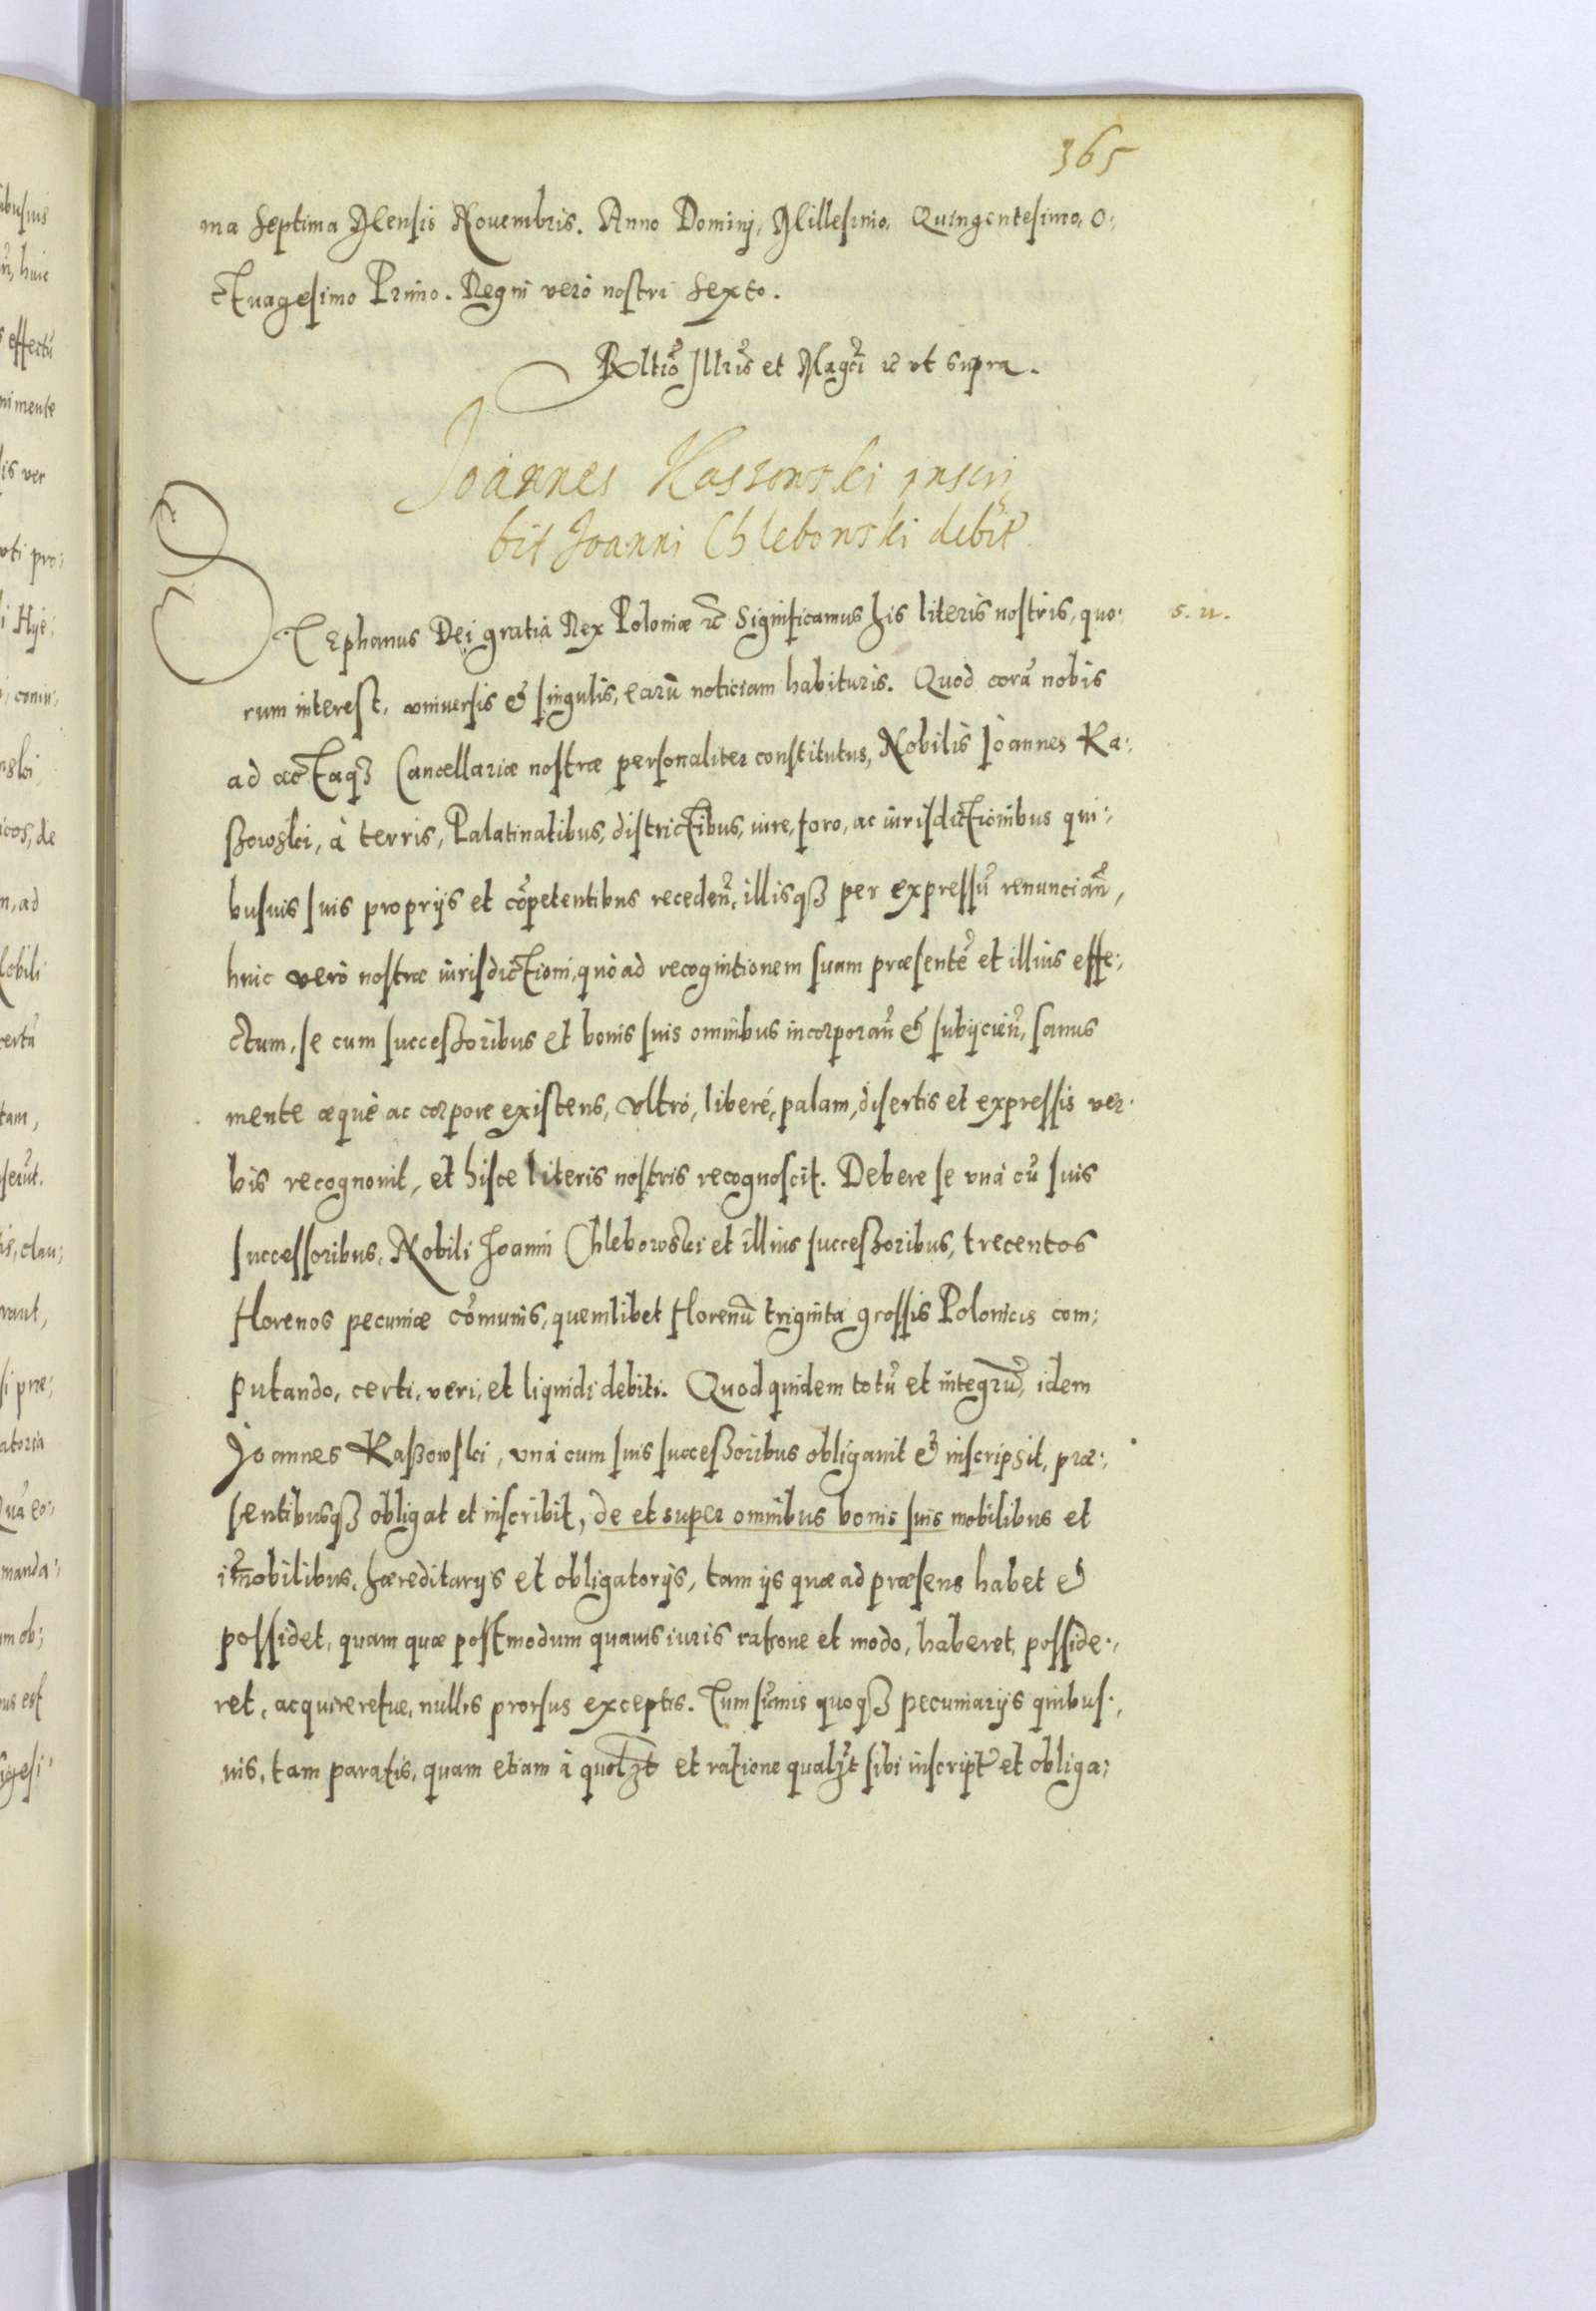 365
ma Septima Mensis Nouembris. Anno Dominj, Millesimo, Quingentesimo, O:
ctuagesimo Primo. Regni verò nostri Sexto.
Rltiõ Illris et Magci rc vt supra.
Joannes Kassowski inscri
bit Joanni Chlebowski debit
STEphanus Dei gratia Rex Poloniæ rc Significamus his literis nostris, quo:
s. u.
rum interest, vniuersis & singulis, earũ noticiam habituris. Quod corã nobis
ad actaqȝ Cancellariæ nostræ personaliter constitutus, Nobilis Joannes Ka:
szowski, à terris, Palatinatibus, districtibus, iure, foro, ac iurisdictionibus qui:
busuis suis proprijs et cõpetentibus recedeñ, illisqȝ per expressũ renunciañ,
huic verò nostræ iurisdictioni, quò ad recognitionem suam præsentẽ et illius effe:
ctum, se cum successoribus et bonis suis omnibus incorporañ & subijcieñ, sanus
mente æquè ac corpore existens, vltrò, liberé, palam, disertis et expressis ver:
bis recognouit, et hisce literis nostris recognoscit. Debere se vnà cũ suis
successoribus, Nobili Joanni Chlebowski et illius successoribus, trecentos
florenos pecuniæ cõmunis, quemlibet florenũ triginta grossis Polonicis com:
putando, certi, veri, et liquidi debiti. Quod quidem totũ et integrũ, idem
Joannes Kaszowski, vnà cum suis successoribus obligauit & inscripsit, præ:
sentibusqȝ obligat et inscribit, de et super omnibus bonis suis mobilibus et
im̃obilibus, hæreditarijs et obligatorijs, tam ijs quæ ad præsens habet &
possidet, quam quæ postmodum quauis iuris ratione et modo, haberet, posside:
ret, acquireretue, nullis prorsus exceptis. Tum sũmis quoqȝ pecuniarijs quibus:
uis, tam paratis, quam etiam à quolȝt et ratione qualȝt sibi inscript et obliga: